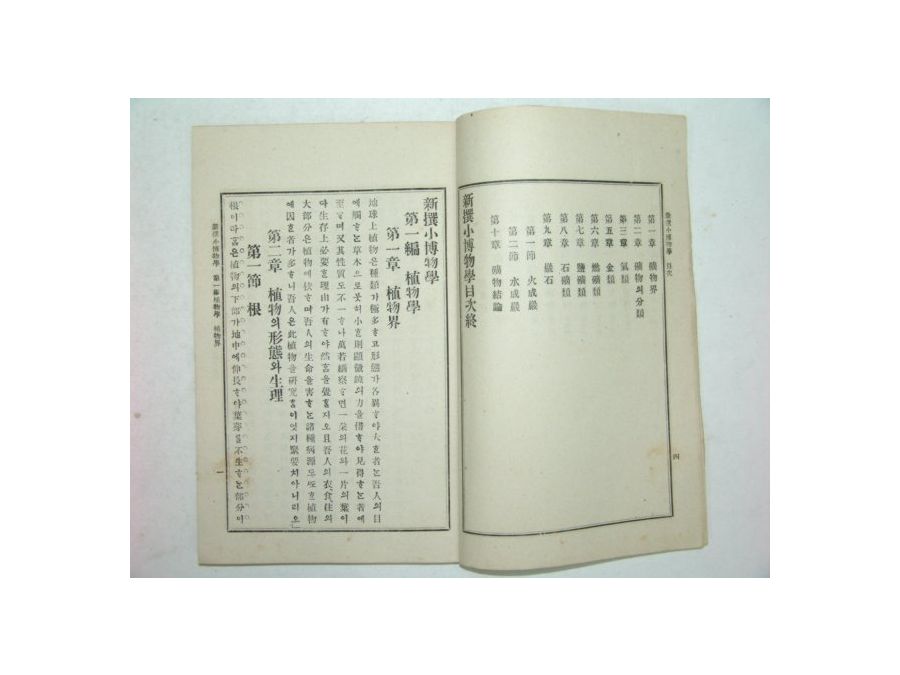 新撰小博物學 目次
第一章 礦物界
第二章 礦物의分類
第三章 氣類
第五章 金類
第六章 燃礦類
第七章 鹽礦類
第八章 石礦類
第九章 巖石
第一節 火成巖
第二節 水成巖
第十章 礦物結論
新撰小博物學目次終
四
新撰小博物學
第一編 植物學
第一章 植物界
地球上植物은種類가極多ᄒᆞ고形態가各異ᄒᆞ야大ᄒᆞᆫ者ᄂᆞᆫ吾人의目
에觸ᄒᆞᄂᆞᆫ草木으로붓허小ᄒᆞᆫ則顯微鏡의力을借ᄒᆞ야見得ᄒᆞᄂᆞᆫ者에
至ᄒᆞ며又其性質도不一ᄒᆞ나萬若細察ᄒᆞ면一朶의花와一片의葉이
다生存上必要ᄒᆞᆫ理由가有ᄒᆞ야然홈을覺ᄒᆞᆯ지오且吾人의衣、食、住의
大部分은植物에依ᄒᆞ며吾人의生命을害ᄒᆞᄂᆞᆫ諸種病源도ᄯᅩᄒᆞᆫ植物
에因ᄒᆞᆫ者가多ᄒᆞ니吾人은此植物을研究홈이엇지緊要치아니리오
第二章 植物의形態와生理
第一節 根
根이라홈은植物의下部가地中에伸長ᄒᆞ야葉芽ᄅᆞᆯ不生ᄒᆞᄂᆞᆫ部分이
新撰小博物學 第一編植物學 植物界
一